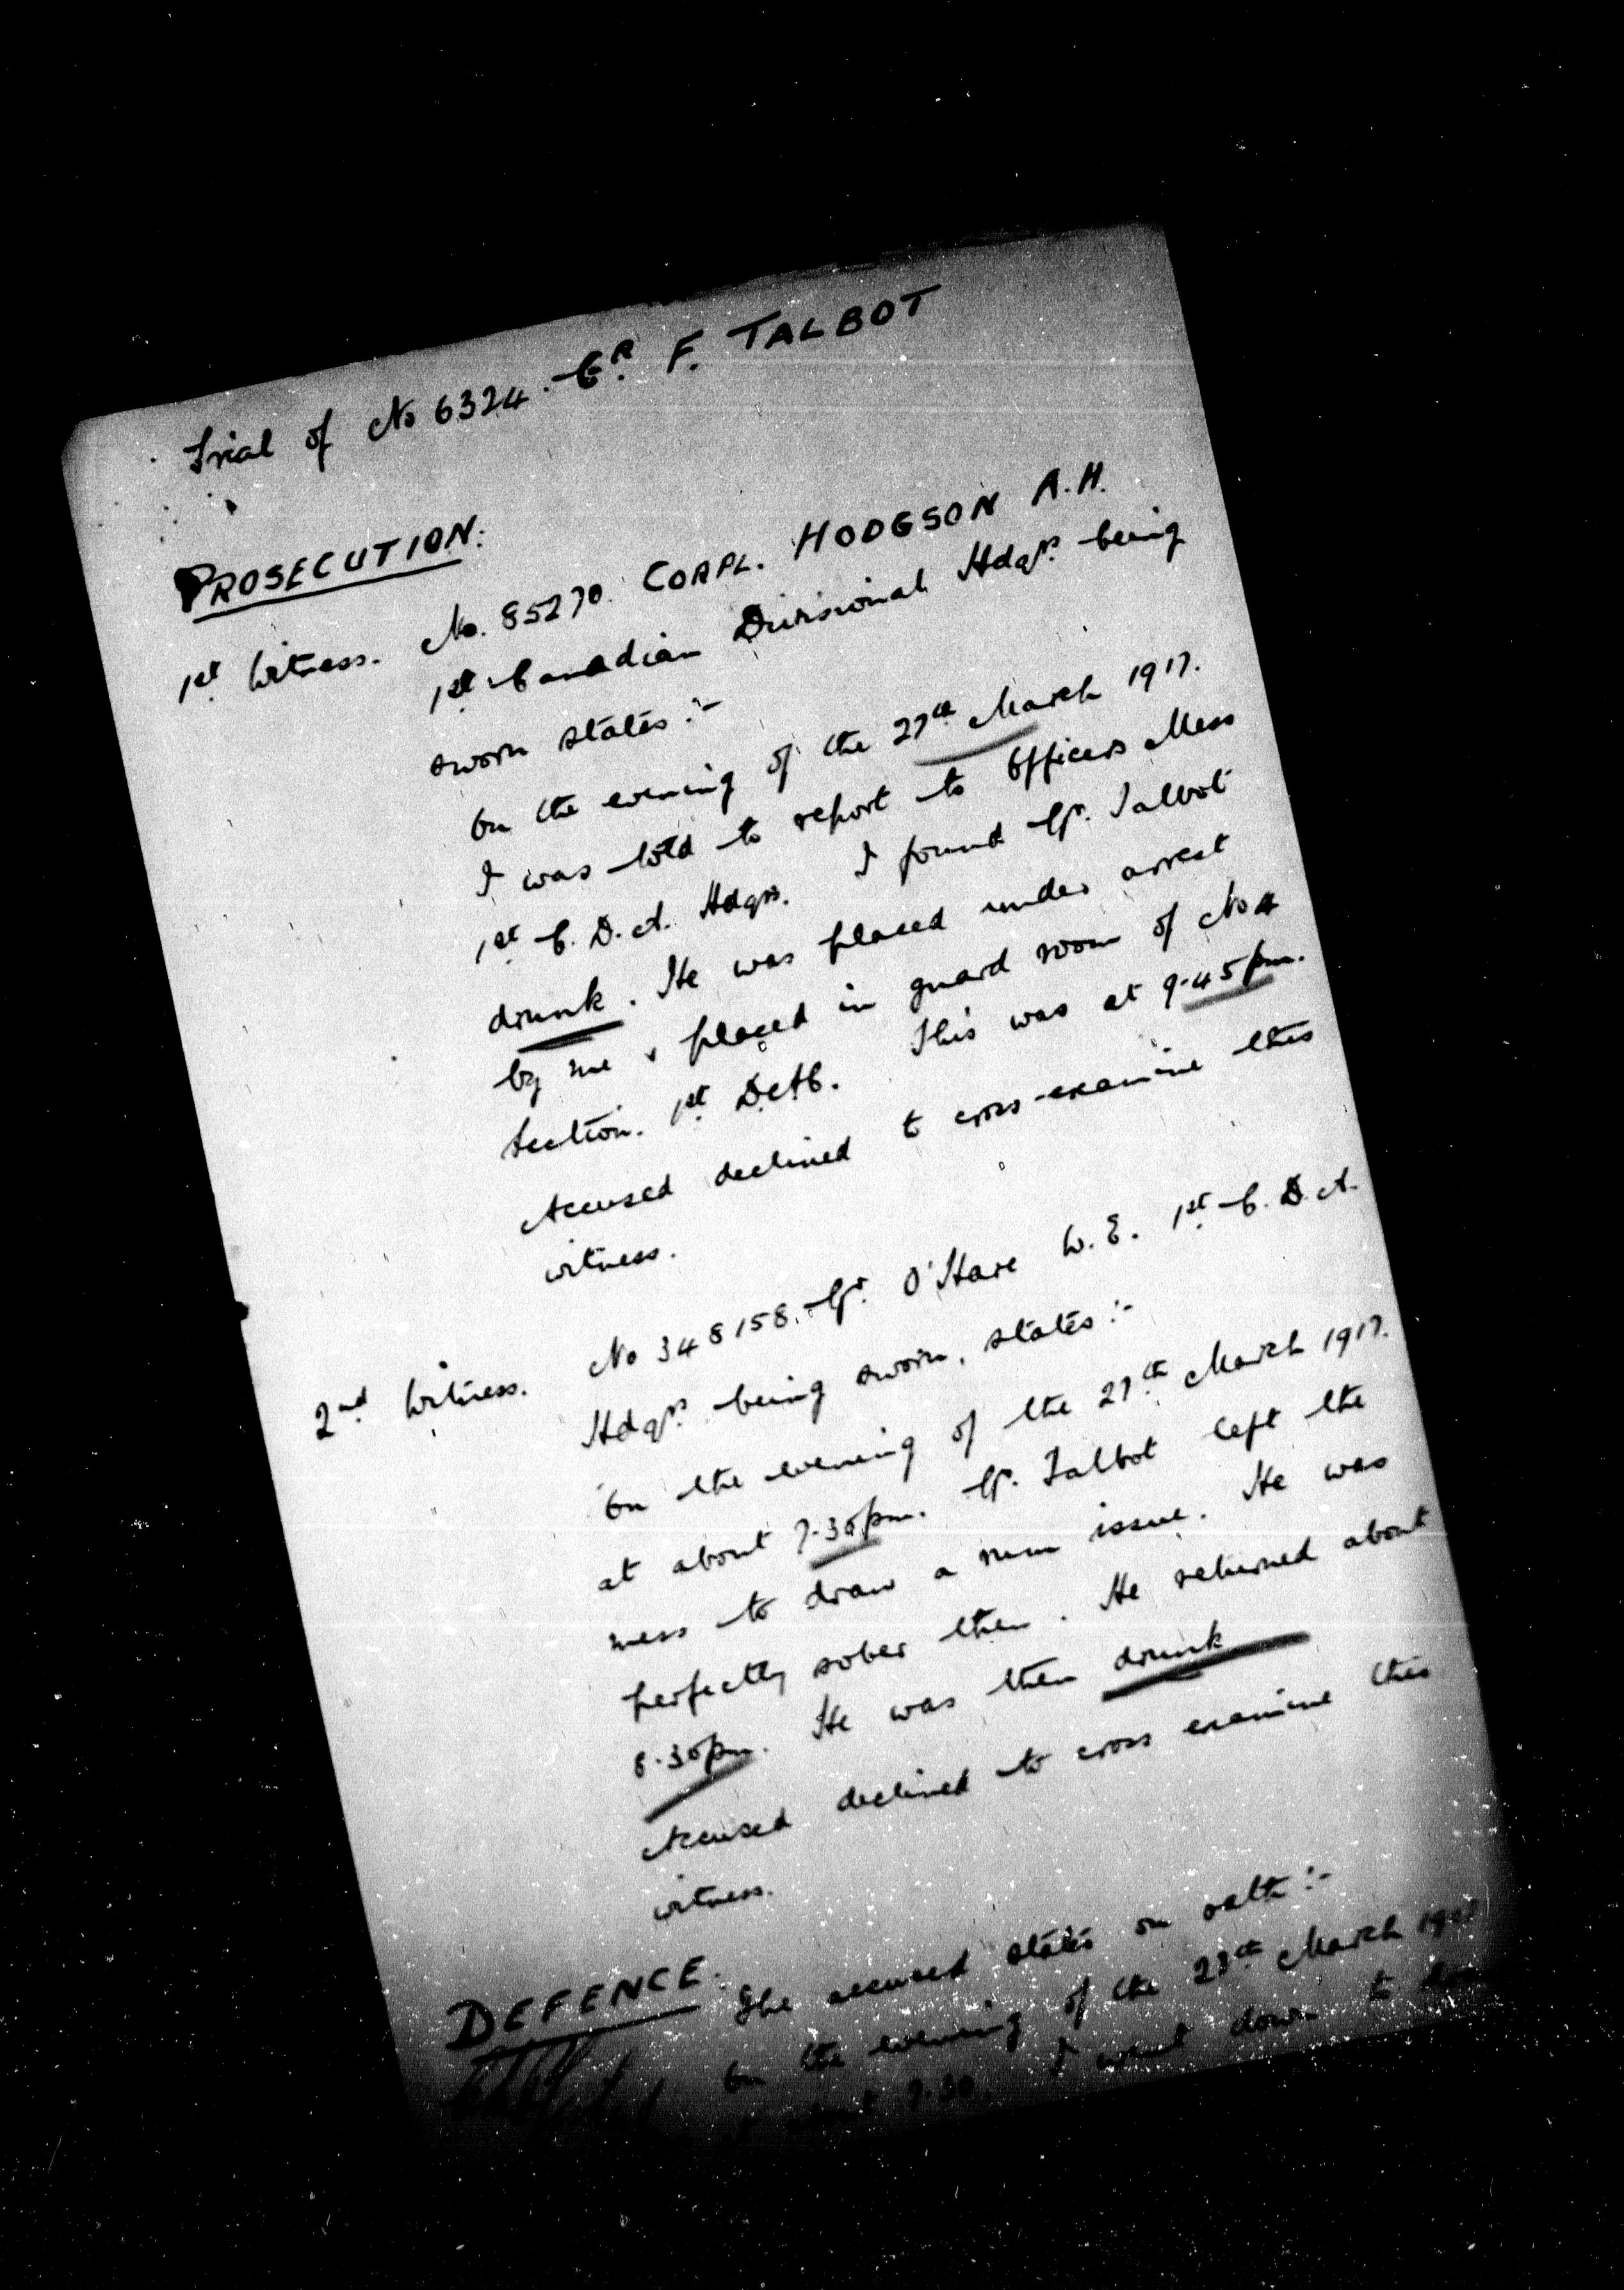 Trial of No 6324. Gr. F. TALBOT
PROSECUTION.
1st Witness. No. 85270. CORPL. HODGSON A.H.
1st Canadian Divisional Hdqrs. being
sworn states :-
On the evening of the 27th March 1917.
I was told to report to Officers Mess
1st C. D. A. Hdqrs. I found Gr. Talbot
drunk. He was placed under arrest
by me & placed in guard room of No 4
Section. 1st D.A.C. This was at 9.45 pm.
Accused declined to cross-examine this
witness.
2nd Witness. No 348158. Gr. O'Hare W. E. 1st C. D. A.
Hdqrs. being sworn, states :-
On the evening of the 27th March 1917.
at about 7.30 pm. Gr. Talbot left the
mess to draw a rum issue. He was
perfectly sober then. He returned about
8.30 pm. He was then drunk
Accused declined to cross examine this
witness.
DEFENCE. The accused states on oath :-
On the evening of the 27th March 1917
at about 7.30. I went down to